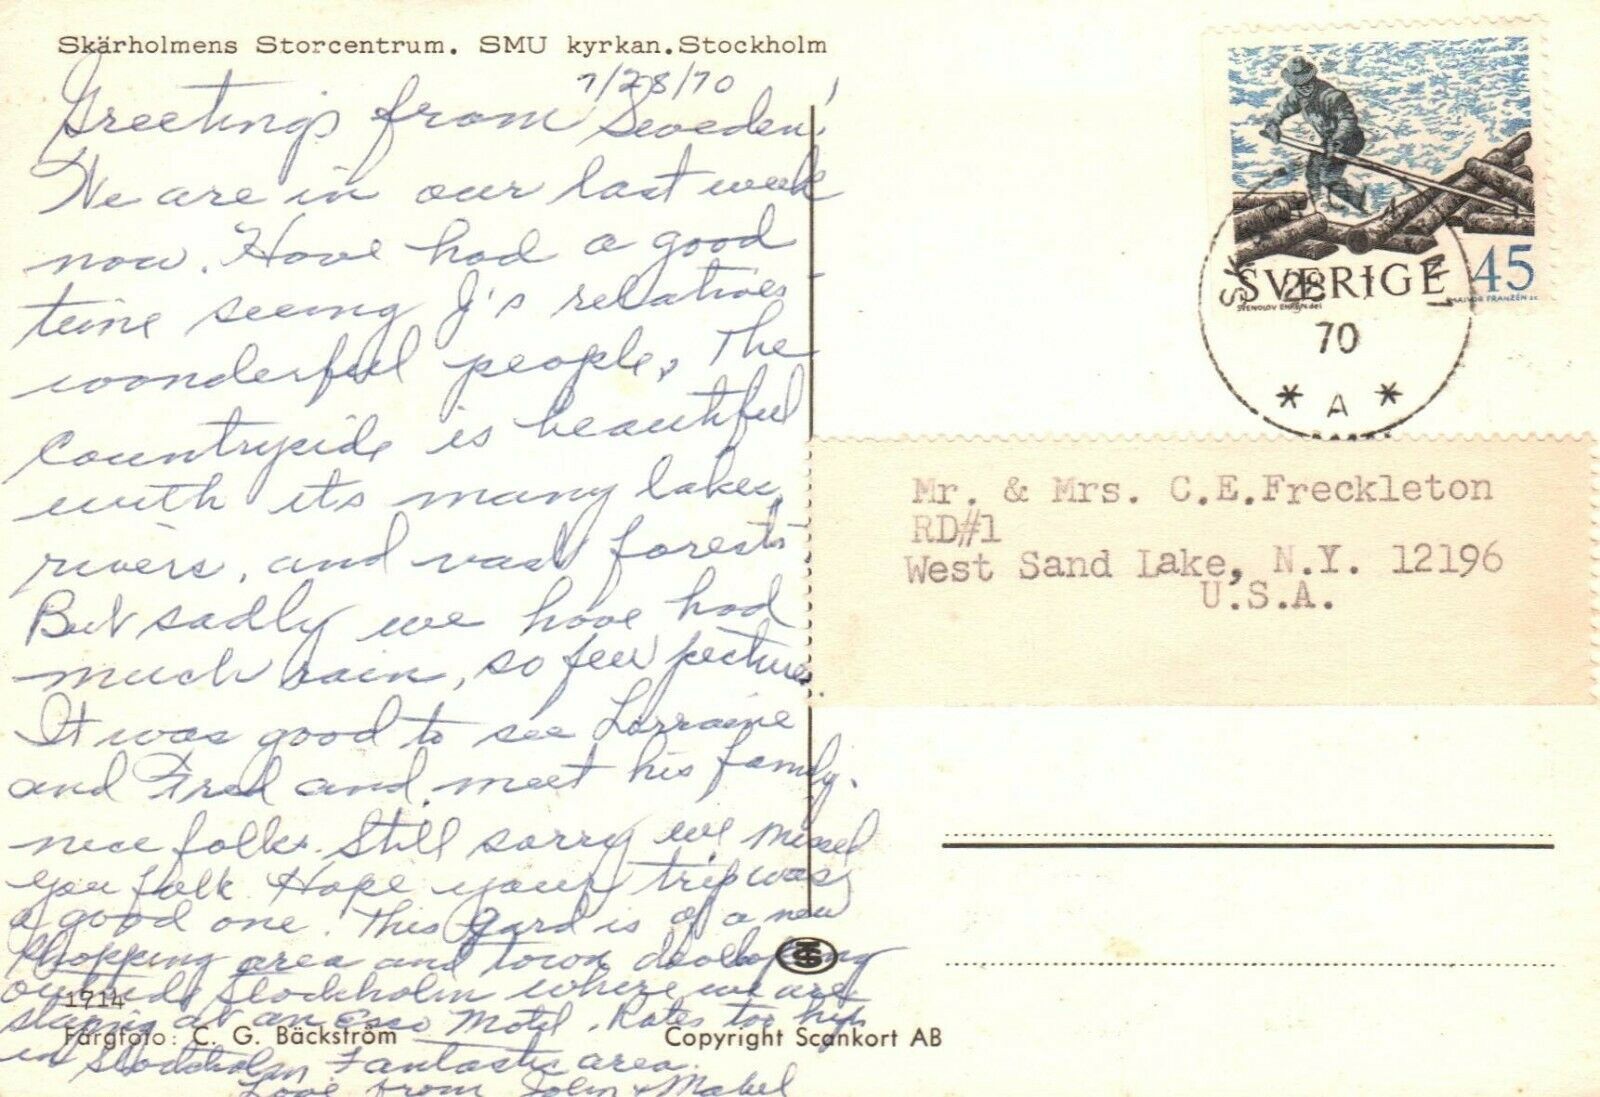 Skärholmens Storcentrum. SMU kyrkan. Stockholm
7/28/70
Greetings from Sweden!
We are in our last week
now. Have had a good
time seeing J's relatives
wonderful people. The
countryside is beautiful
with its many lakes,
rivers, and vast forests
But sadly we have had
much rain, so few pictures.
It was good to see Lorraine
and Fred and meet his family.
nice folks. Still sorry we missed
you folk. Hope your trip was
a good one. This card is of a new
shopping area and town developing
outside Stockholm where we are
staying at an Esso Motel. Rates too high
in Stockholm. Fantastic area.
Love from John & Mabel
1914
Färgfoto: C. G. Bäckström
Copyright Scankort AB
SVERIGE 45
SVENOLOV EHRÉN del
MAJVOR FRANZÉN sc
28
70
* A *
Mr. & Mrs. C.E.Freckleton
RD#1
West Sand Lake, N.Y. 12196
U.S.A.